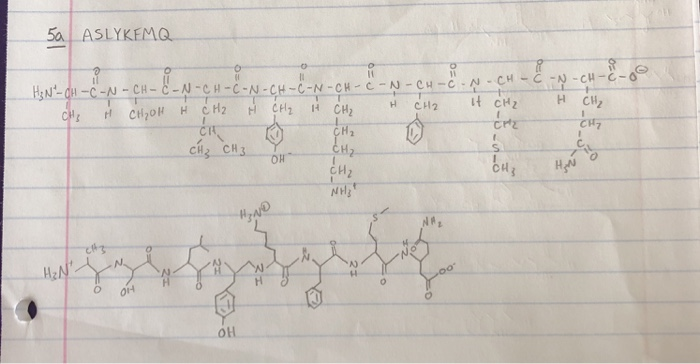 5a ASLYKFMQ
O O O O O O O O
H₃N⁺-CH-C-N-CH-C-N-CH-C-N-CH-C-N-CH-C-N-CH-C-N-CH-C-N-CH-C-O⊖
CH₃ H CH₂OH H CH₂ H CH₂ H CH₂ H CH₂ H CH₂ H CH₂
CH CH₂ CH₂ CH₂
CH₃ CH₃ OH CH₂ S C O
CH₂ CH₃ H₂N
NH₃⁺
H₃N⊕ S NH₂
CH₃ O O H O H O
H₃N⁺ N N N N N N N OO⁻
O OH H O H H O H O O
OH